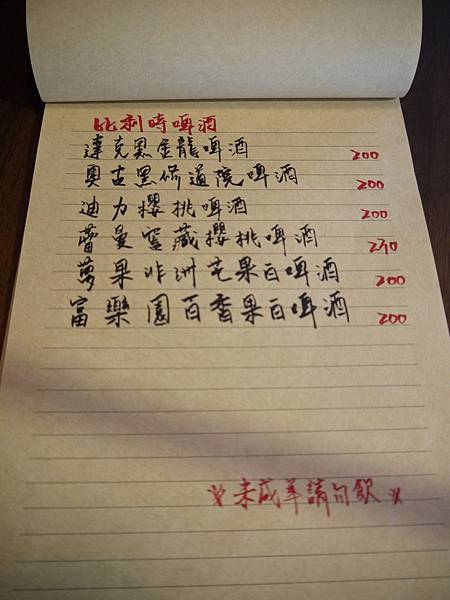 比利時啤酒
達克黑金龍啤酒 200
奧古黑修道院啤酒 200
迪力櫻桃啤酒 200
蕾曼窖藏櫻桃啤酒 270
夢果非洲芒果白啤酒 200
富樂園百香果白啤酒 200
未成年請勿飲